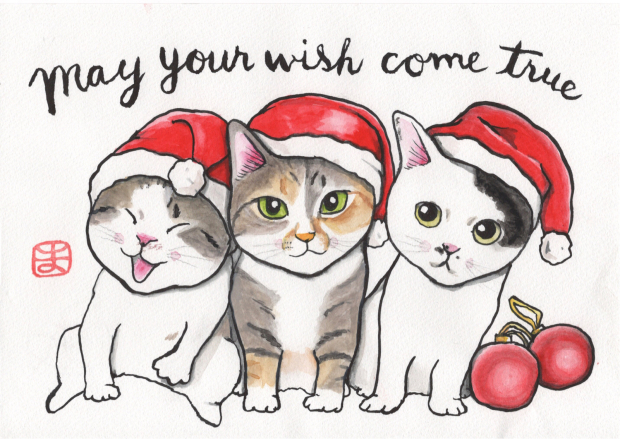 May your wish come true
ま